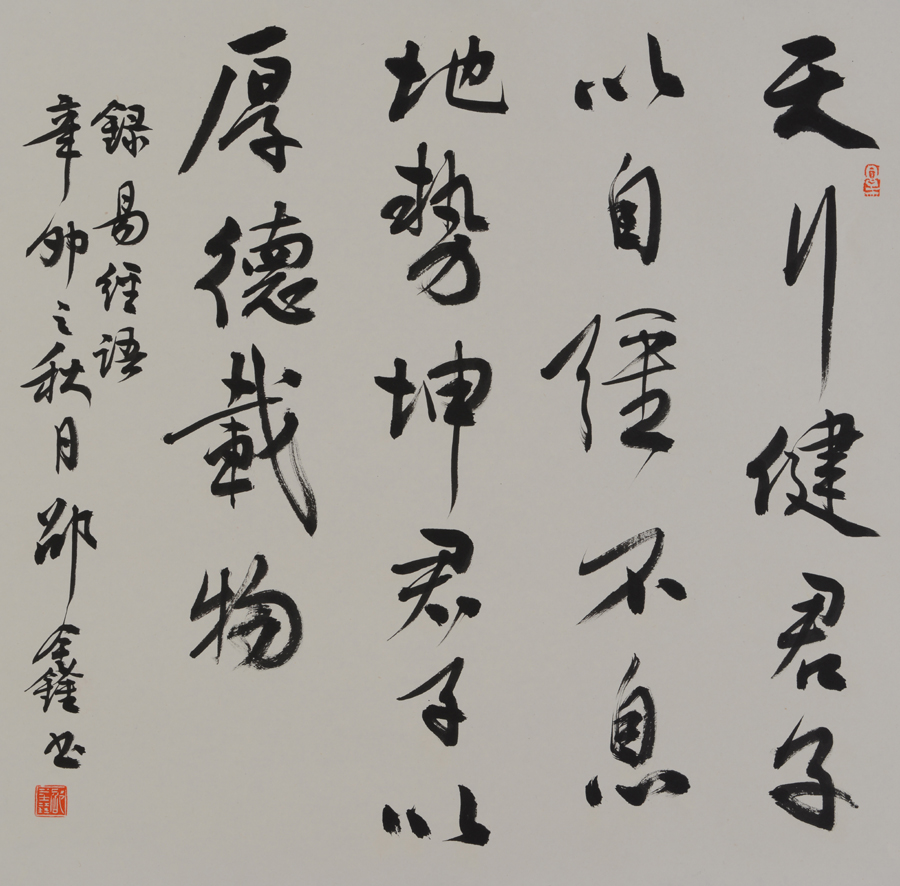 天行健君子
以自彊不息
地勢坤君子以
厚德載物
録易經語
辛卯之秋月邵鑫书